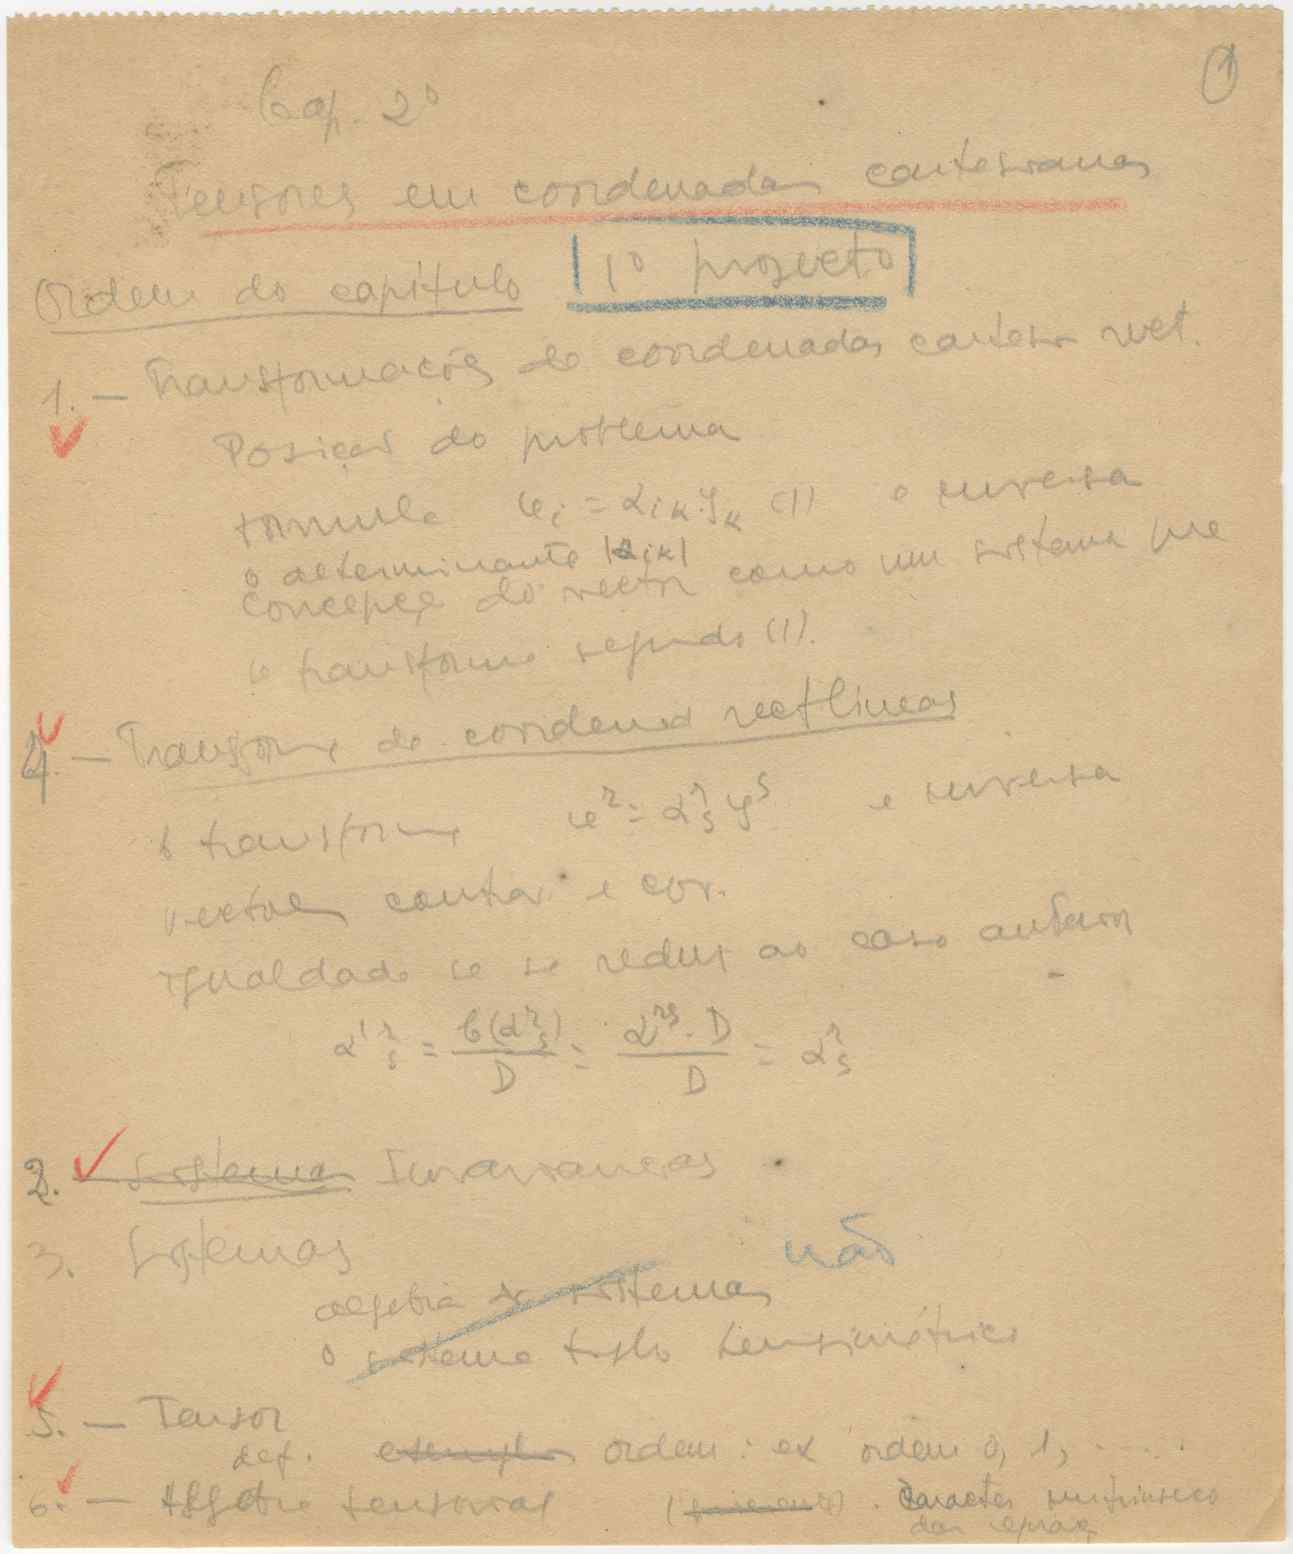 1
Cap. 2º
Tensores em coordenadas cartesianas
Ordem do capítulo 1º projecto
1. — Transformações de coordenadas cartes. rect.
Posição do problema
fórmula φi = αik yk (1) e inversa
o determinante |αik|
concepção do vector como um sistema que
se transforma segundo (1).
4. — Transform. de coordenad rectilíneas
transform e inversa
vectores contrav. e cov.
igualdade se se reduz ao caso anterior
α'rs = C(αrs)/D = αrs · D/D = αrs
2. sistemas Invariancias
3. Sistemas
não
algebra de sistemas
o sistema triplo hemisimétrico
5. — Tensor
def. exemplos ordem : ex ordem 0, 1, ....
6. — Algebra tensorial . Caracter intrinseco
das